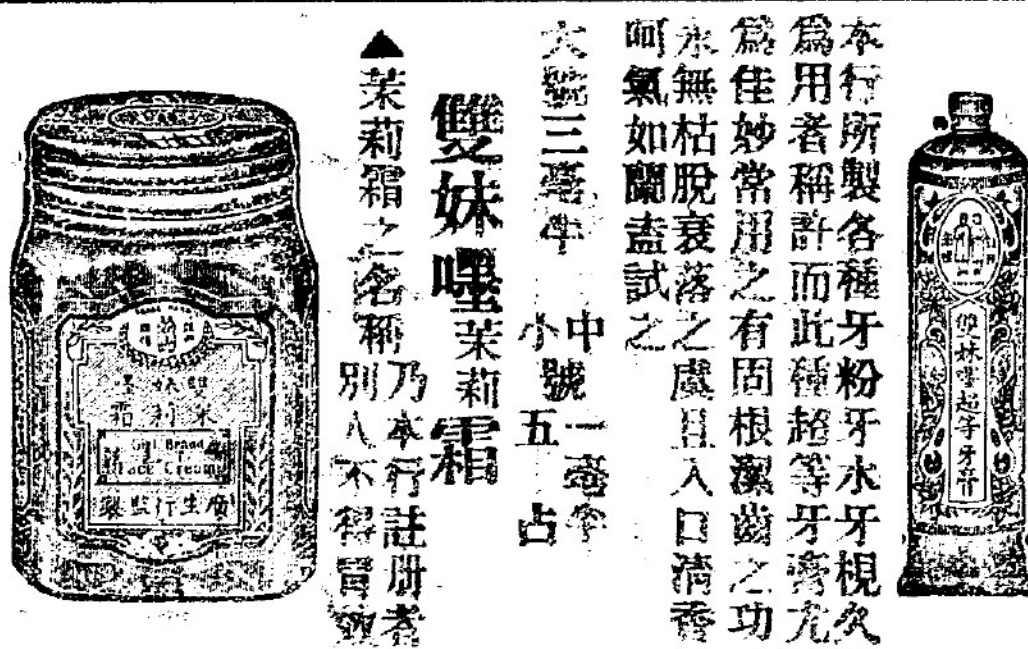 本行所製各種牙粉牙水牙梘久
爲用者稱許而此種超等牙膏尤
爲佳妙常用之有固根潔齒之功
永無枯脫衰落之處且入口清香
呵氣如蘭盍試之
大號三毫半
中號一毫半
小號五占
雙妹嘜茉莉霜
▲茉莉霜之名稱
乃本行註册者
別人不得冒效
雙妹嘜超等牙膏
雙妹嘜
茉莉霜
Girl Brand
Face Cream
廣生行監製